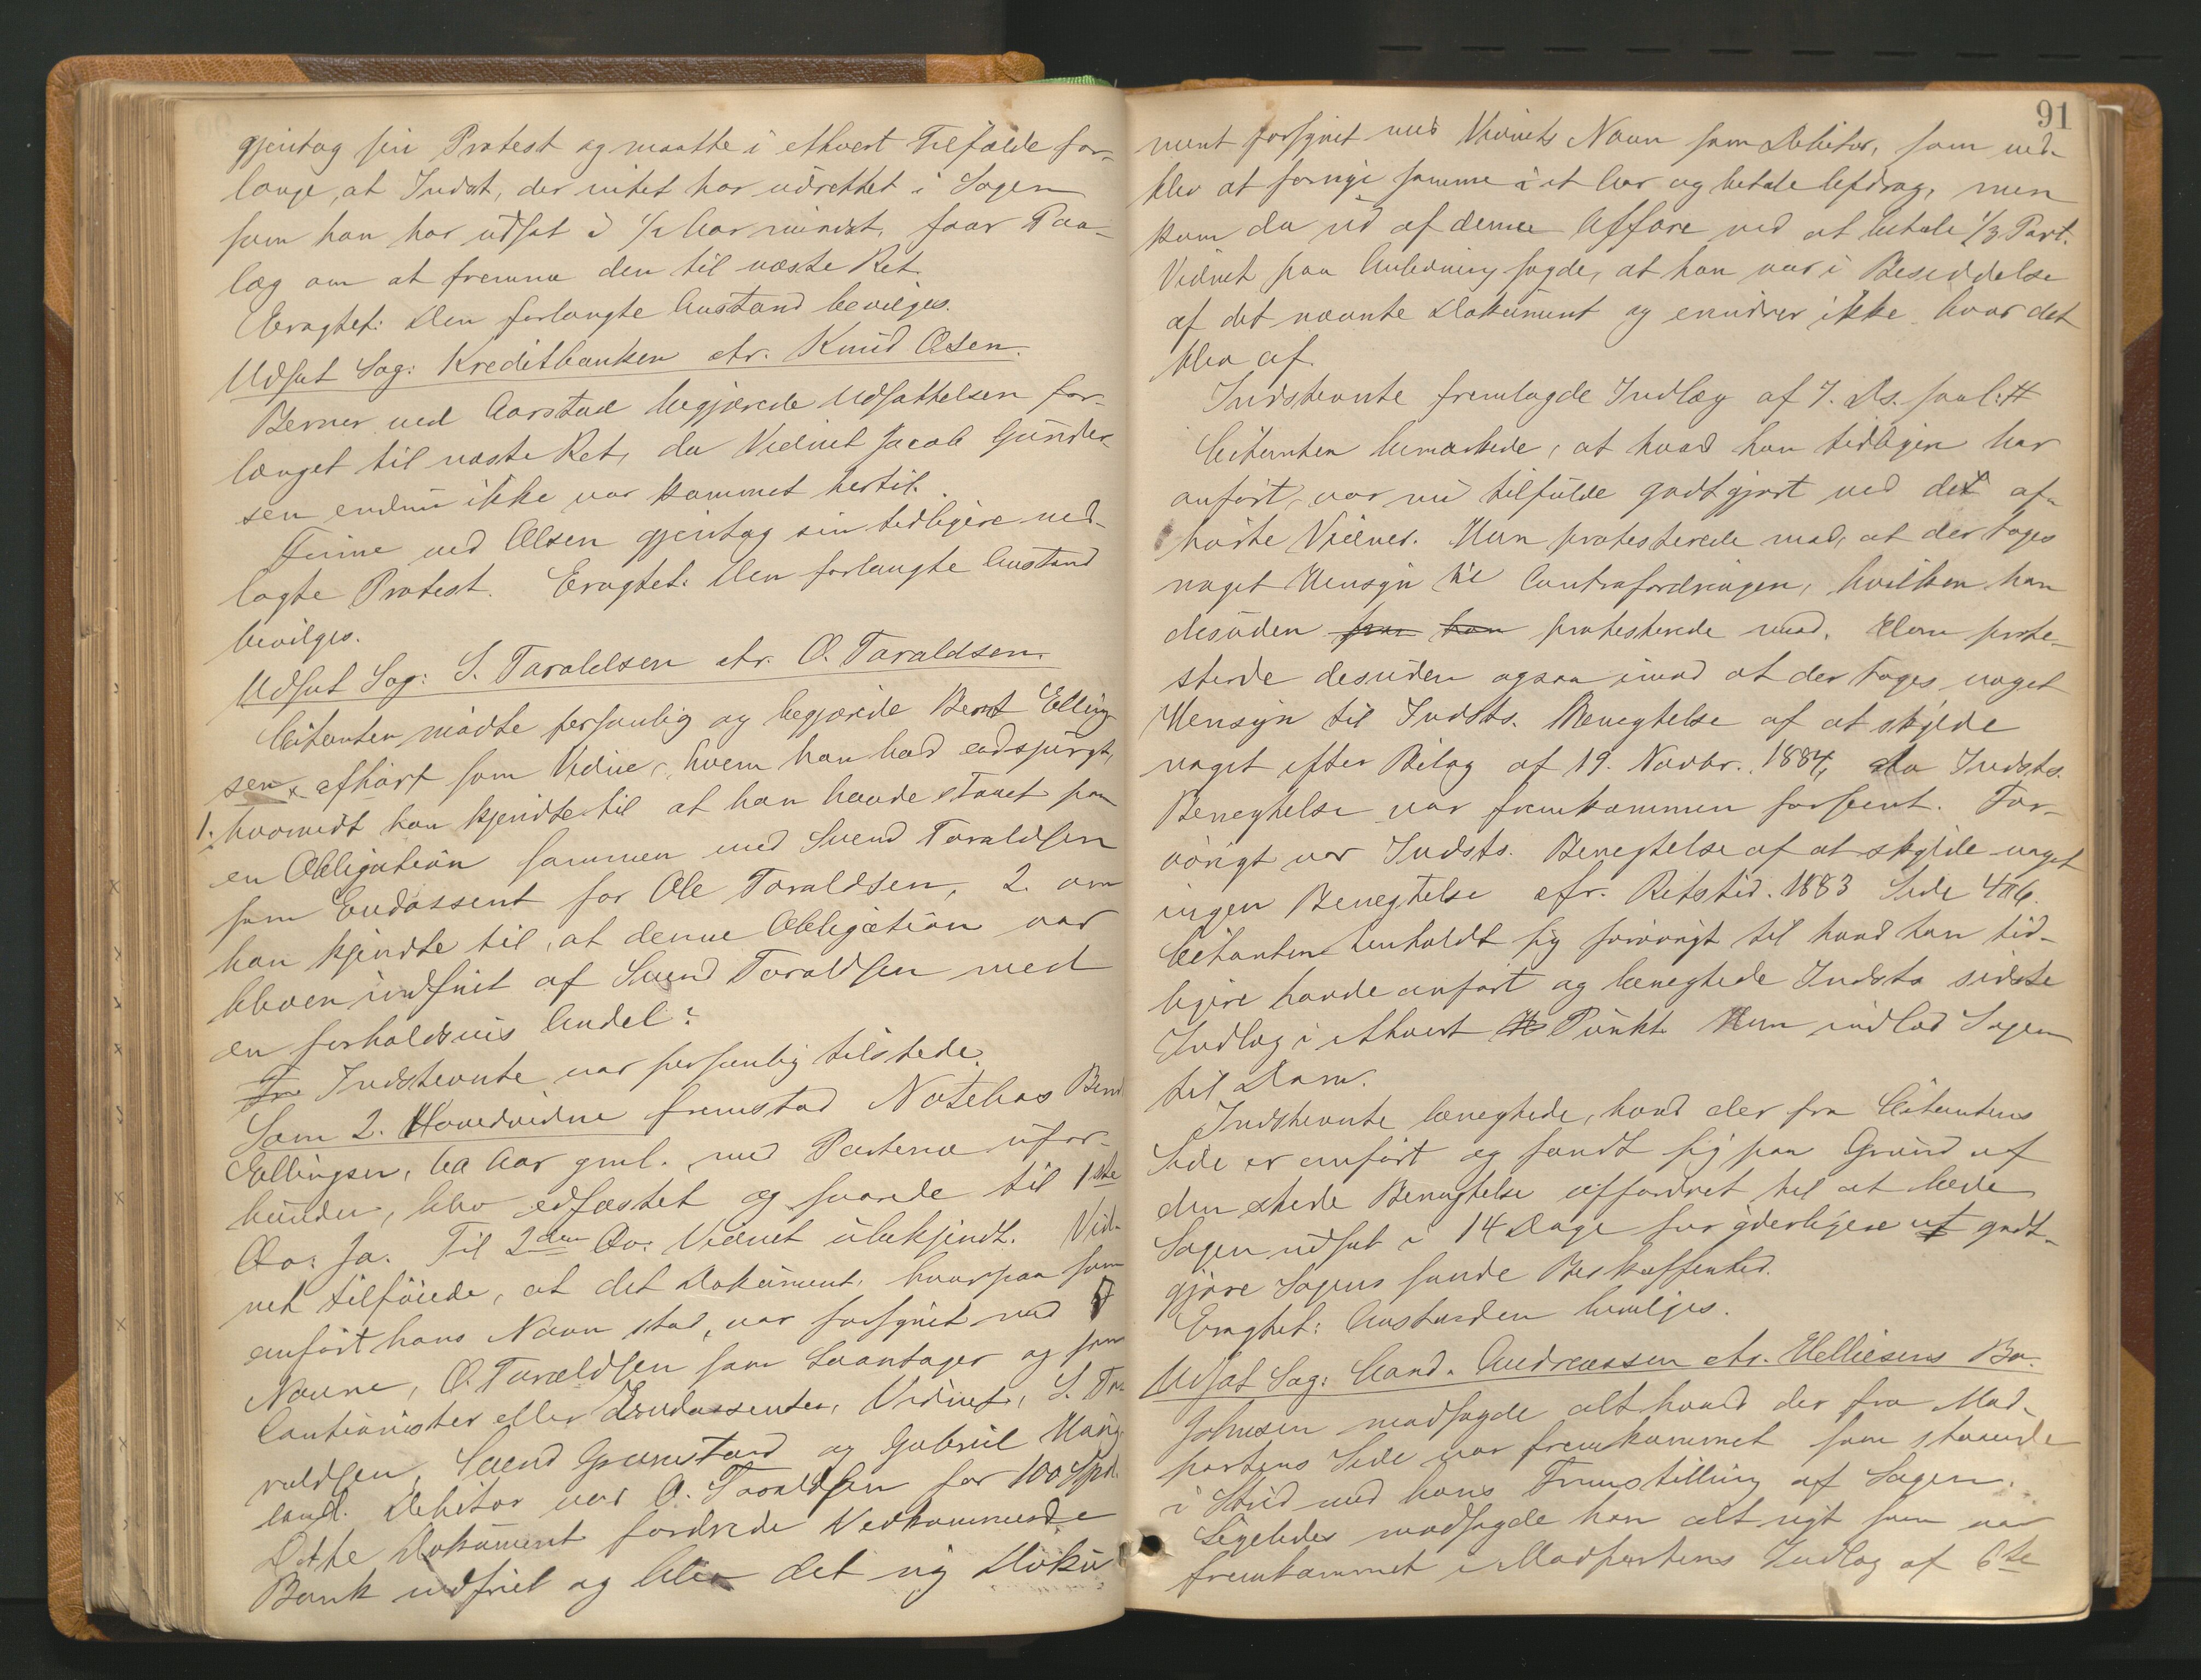 gjentog sin Protest og maatte i ethvert Tilfælde for-
lange, at Indst., der intet har udrettet i Sagen
som han har udsat i 1/2 Aar mindst, faar Paa-
læg om at fremme den til næste Ret.
Eragtet: Den forlangte Anstand bevilges.
Udsat Sag: Kreditbanken ctr. Knud Olsen.
Berner ved Aarstad begjærede Udsættelsen for-
længet til næste Ret, da Vidnet Jacob Gunder
sen endnu ikke var kommet hertil.
Finne ved Olsen gjentog sin tidligere ned-
lagte Protest. Eragtet: Den forlangte Anstand
bevilges.
Udsat Sag: S. Taraldsen ctr. O. Taraldsen.
Citanten mødte personlig og begjærede Bernt Elling
sen afhørt som Vidne, hvem han bad adspurgt,
1. hvorvidt han kjendte til at han havde staaet paa
en Obligation sammen med Svend Taraldsen
som Endossent for Ole Taraldsen, 2. om
han kjendte til, at denne Obligation var
bleven indfriet af Svend Taraldsen med
en forholdsvis Andel?
Indstevnte var personlig tilstede.
Som 2. Hovedvidne fremstod Notebas Bernt
Ellingsen, 62 Aar gml. med Parterne ufor-
bunden, blev edfæstet og svarede til 1ste
Qv: Ja. Til 2den Qv: Vidnet ubekjendt. Vid-
net tilføiede, at det Dokument, hvorpaa som
anført hans Navn stod, var forsynet med
Navne, O. Taraldsen som Laantager og som
Cautionister eller Endossenter, Vidnet, S. Ta-
raldsen, Svend Grimstad og Gabriel Haug
land. Debitor var O. Taraldsen for 100 Spd.
Dette Dokument fordrede Vedkommende
Bank udfriet og blev det ny Doku
91
ment forsynet med Vidnets Navn som Debitor, som ved-
blev at fornye samme i et Aar og betale Afdrag, men
kom da ud af denne Affære ved at betale 1/3 Part.
Vidnet paa Anledning sagde, at han var i Besiddelse
af det nævnte Dokument og erindrer ikke hvor det
blev af.
Indstevnte fremlagde Indlæg af 7. Ds. saal: #
Citanten bemærkede, at hvad han tidligere har
anført, var nu tilfulde godtgjort ved det af-
hørte Vidne. Han protesterede mod, at der toges
noget Hensyn til Contrafordringen, hvilken han
desuden protesterede mod. Han prote-
sterede desuden ogsaa imod at der toges noget
Hensyn til Indsts. Benegtelse af at skylde
noget efter Bilag af 19. Novbr. 1884, da Indsts.
Benegtelse var fremkommen forsent. For-
øvrigt var Indsts. Benegtelse af at skylde noget
ingen Benegtelse cfr. Retstid. 1883 Side 476.
Citanten henholdt sig forøvrigt til hvad han tid-
ligere havde anført og benegtede Indsts sidste
Indlæg i ethvert Punkt. Han indlod Sagen
til Dom.
Indstevnte benegtede, hvad der fra Citantens
Side er anført og fandt sig paa Grund af
den skede Benegtelse opfordret til at bede
Sagen udsat i 14 Dage for yderligere at godt-
gjøre Sagens sande Beskaffenhed.
Eragtet: Anstanden bevilges.
Udsat Sag: Cand. Andreassen ctr. Helliesens Bo.
Johnsen modsagde alt hvad der fra Mod-
partens Side var fremkommet som staaende
i Strid med hans Fremstilling af Sagen.
Ligeledes modsagde han alt nyt som var
fremkommet i Modpartens Indlæg af 6te